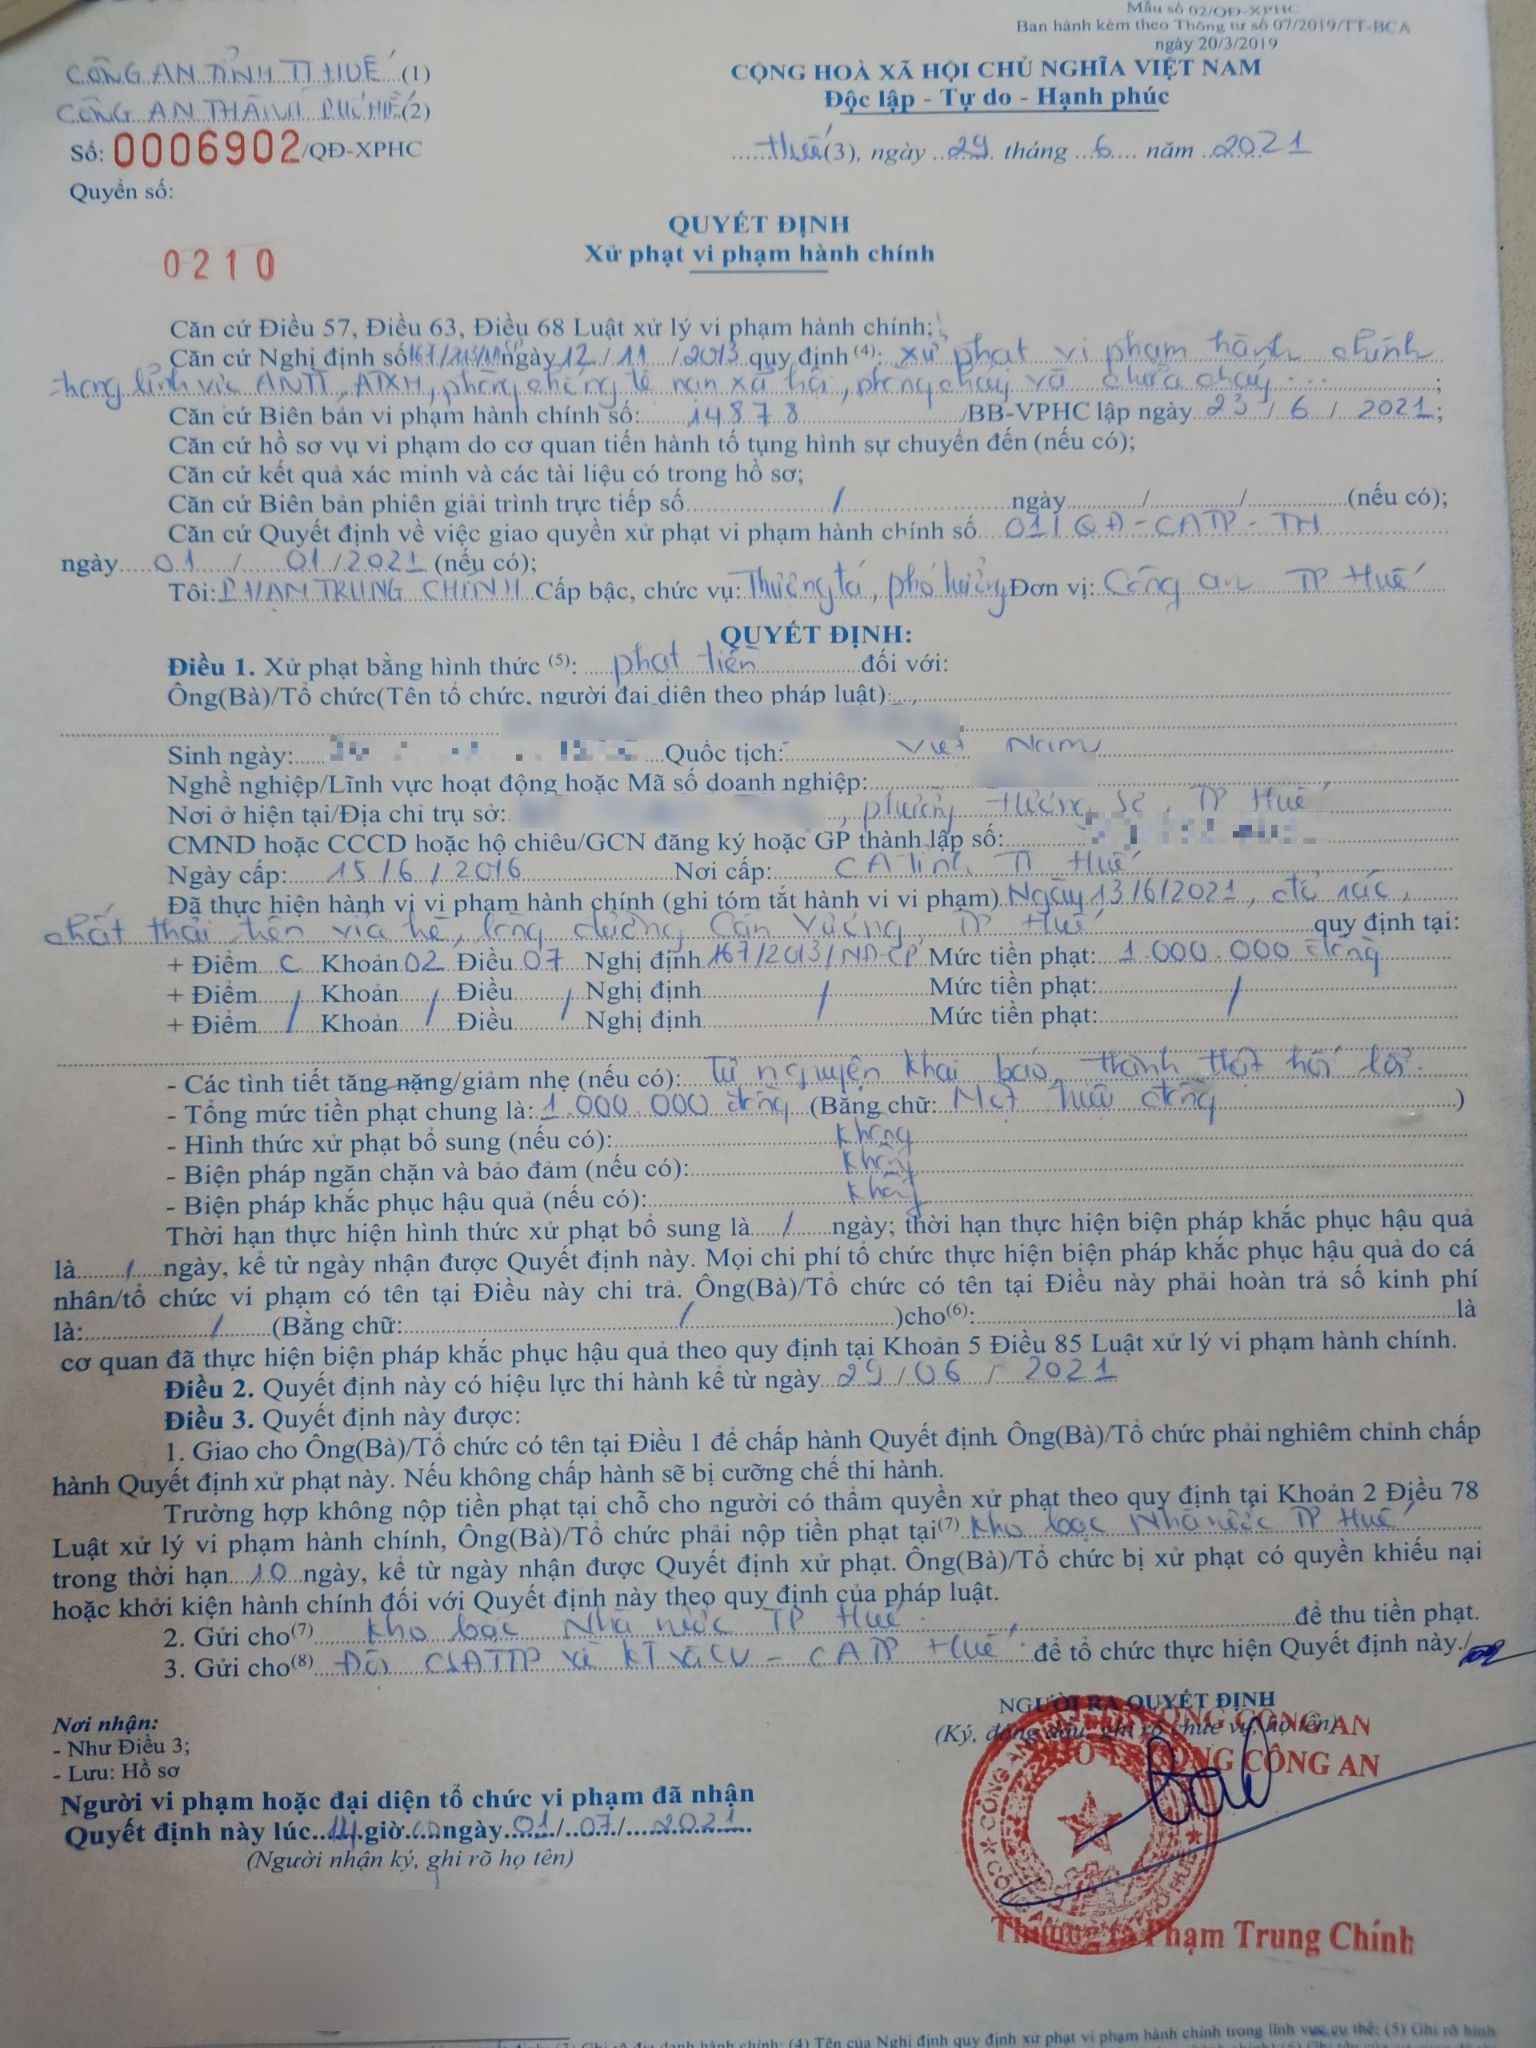 Mẫu số 02/QĐ-XPHC
Ban hành kèm theo Thông tư số 07/2019/TT-BCA
ngày 20/3/2019
CÔNG AN TỈNH TT HUẾ (1)
CÔNG AN THÀNH PHỐ HUẾ (2)
Số: 0006902/QĐ-XPHC
Quyển số:
0210
CỘNG HOÀ XÃ HỘI CHỦ NGHĨA VIỆT NAM
Độc lập - Tự do - Hạnh phúc
Huế (3), ngày 29 tháng 6 năm 2021
QUYẾT ĐỊNH
Xử phạt vi phạm hành chính
Căn cứ Điều 57, Điều 63, Điều 68 Luật xử lý vi phạm hành chính;
Căn cứ Nghị định số 167/2013/NĐ ngày 12/11/2013 quy định (4): xử phạt vi phạm hành chính
trong lĩnh vực ANTT, ATXH, phòng chống tệ nạn xã hội, phòng cháy và chữa cháy...;
Căn cứ Biên bản vi phạm hành chính số: 14878/BB-VPHC lập ngày 23/6/2021;
Căn cứ hồ sơ vụ vi phạm do cơ quan tiến hành tố tụng hình sự chuyển đến (nếu có);
Căn cứ kết quả xác minh và các tài liệu có trong hồ sơ;
Căn cứ Biên bản phiên giải trình trực tiếp số / ngày / / (nếu có);
Căn cứ Quyết định về việc giao quyền xử phạt vi phạm hành chính số 01/QĐ-CATP-TH
ngày 01/01/2021 (nếu có);
Tôi: PHẠM TRUNG CHÍNH Cấp bậc, chức vụ: Thượng tá, phó trưởng Đơn vị: Công an TP Huế
QUYẾT ĐỊNH:
Điều 1. Xử phạt bằng hình thức (5): phạt tiền đối với:
Ông(Bà)/Tổ chức(Tên tổ chức, người đại diện theo pháp luật):
Sinh ngày: Quốc tịch: Việt Nam
Nghề nghiệp/Lĩnh vực hoạt động hoặc Mã số doanh nghiệp:
Nơi ở hiện tại/Địa chỉ trụ sở: , phường Hương Sơ, TP Huế
CMND hoặc CCCD hoặc hộ chiếu/GCN đăng ký hoặc GP thành lập số:
Ngày cấp: 15/6/2016 Nơi cấp: CA tỉnh TT Huế
Đã thực hiện hành vi vi phạm hành chính (ghi tóm tắt hành vi vi phạm) Ngày 13/6/2021, đổ rác,
chất thải trên vỉa hè, lòng đường Cần Vương, TP Huế quy định tại:
+ Điểm c Khoản 02 Điều 07 Nghị định 167/2013/NĐ-CP Mức tiền phạt: 1.000.000 đồng
+ Điểm / Khoản / Điều / Nghị định / Mức tiền phạt: /
+ Điểm / Khoản / Điều / Nghị định / Mức tiền phạt: /
- Các tình tiết tăng nặng/giảm nhẹ (nếu có): Tự nguyện khai báo, thành thật hối lỗi.
- Tổng mức tiền phạt chung là: 1.000.000 đồng (Bằng chữ: Một triệu đồng)
- Hình thức xử phạt bổ sung (nếu có): không
- Biện pháp ngăn chặn và bảo đảm (nếu có): không
- Biện pháp khắc phục hậu quả (nếu có): không
Thời hạn thực hiện hình thức xử phạt bổ sung là / ngày; thời hạn thực hiện biện pháp khắc phục hậu quả
là / ngày, kể từ ngày nhận được Quyết định này. Mọi chi phí tổ chức thực hiện biện pháp khắc phục hậu quả do cá
nhân/tổ chức vi phạm có tên tại Điều này chi trả. Ông(Bà)/Tổ chức có tên tại Điều này phải hoàn trả số kinh phí
là: / (Bằng chữ: / )cho(6): là
cơ quan đã thực hiện biện pháp khắc phục hậu quả theo quy định tại Khoản 5 Điều 85 Luật xử lý vi phạm hành chính.
Điều 2. Quyết định này có hiệu lực thi hành kể từ ngày 29/06/2021
Điều 3. Quyết định này được:
1. Giao cho Ông(Bà)/Tổ chức có tên tại Điều 1 để chấp hành Quyết định. Ông(Bà)/Tổ chức phải nghiêm chỉnh chấp
hành Quyết định xử phạt này. Nếu không chấp hành sẽ bị cưỡng chế thi hành.
Trường hợp không nộp tiền phạt tại chỗ cho người có thẩm quyền xử phạt theo quy định tại Khoản 2 Điều 78
Luật xử lý vi phạm hành chính, Ông(Bà)/Tổ chức phải nộp tiền phạt tại(7) Kho bạc Nhà nước TP Huế
trong thời hạn 10 ngày, kể từ ngày nhận được Quyết định xử phạt. Ông(Bà)/Tổ chức bị xử phạt có quyền khiếu nại
hoặc khởi kiện hành chính đối với Quyết định này theo quy định của pháp luật.
2. Gửi cho(7) Kho bạc Nhà nước TP Huế để thu tiền phạt.
3. Gửi cho(8) Đội CSĐTTP về KT và CV - CATP Huế để tổ chức thực hiện Quyết định này./.
Nơi nhận:
- Như Điều 3;
- Lưu: Hồ sơ
Người vi phạm hoặc đại diện tổ chức vi phạm đã nhận
Quyết định này lúc 14 giờ 00 ngày 01/07/2021
(Người nhận ký, ghi rõ họ tên)
NGƯỜI RA QUYẾT ĐỊNH
(Ký, đóng dấu, ghi rõ chức vụ, họ tên)
TRƯỞNG CÔNG AN
PHÓ TRƯỞNG CÔNG AN
Thượng tá Phạm Trung Chính
(4) Tên của Nghị định quy định xử phạt vi phạm hành chính trong lĩnh vực cụ thể; (5) Ghi rõ hình